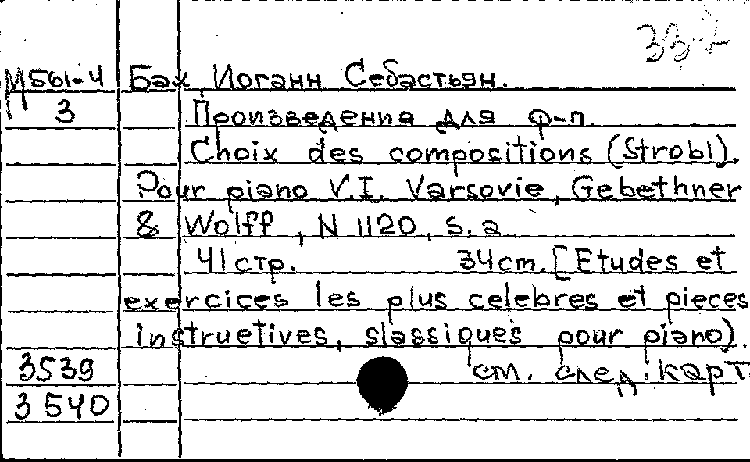 33-2
М561-4 Бах Иоганн Себастьян.
3 Произведения для ф-п.
Choix des compositions (Strobl).
Pour piano V.I. Varsovie, Gebethner
& Wolff, N 1120, s.a
41 стр. 34cm. [Etudes et
exercices les plus celebres et pieces
instructives, slassiques pour piano).
3539 см. след. карт.
3540